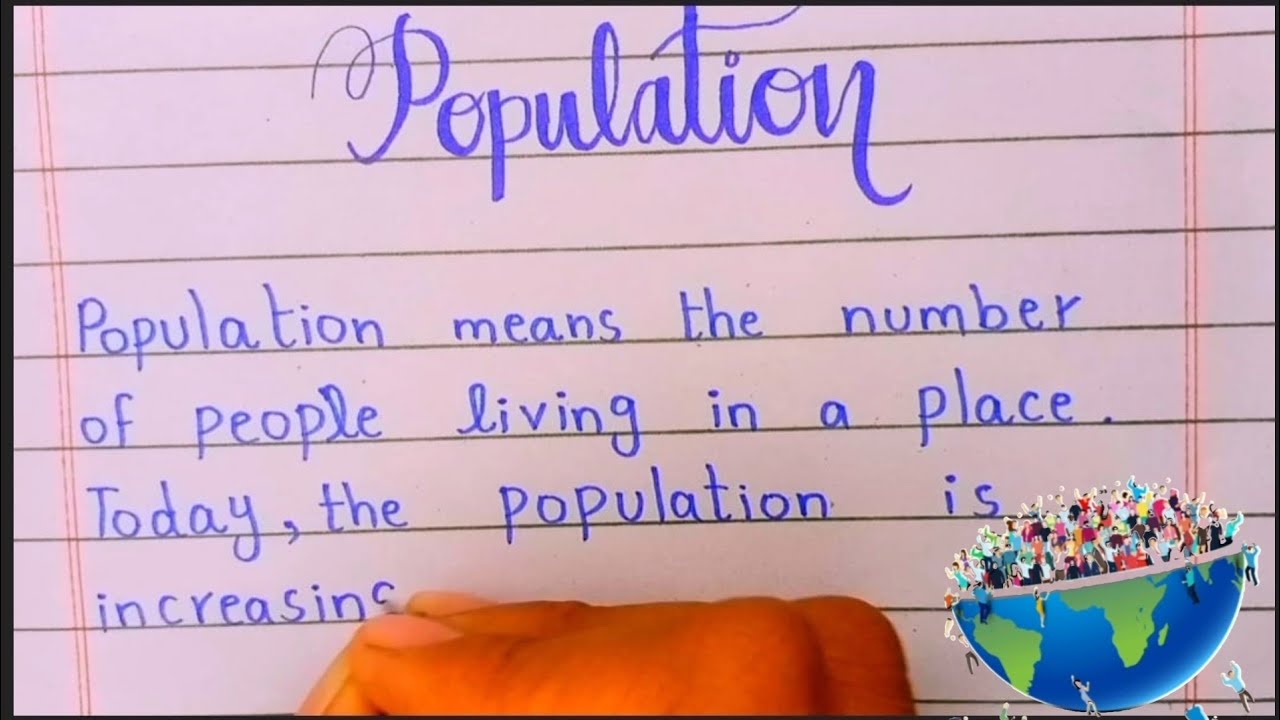 Population
Population means the number
of people living in a place.
Today, the population is
increasing